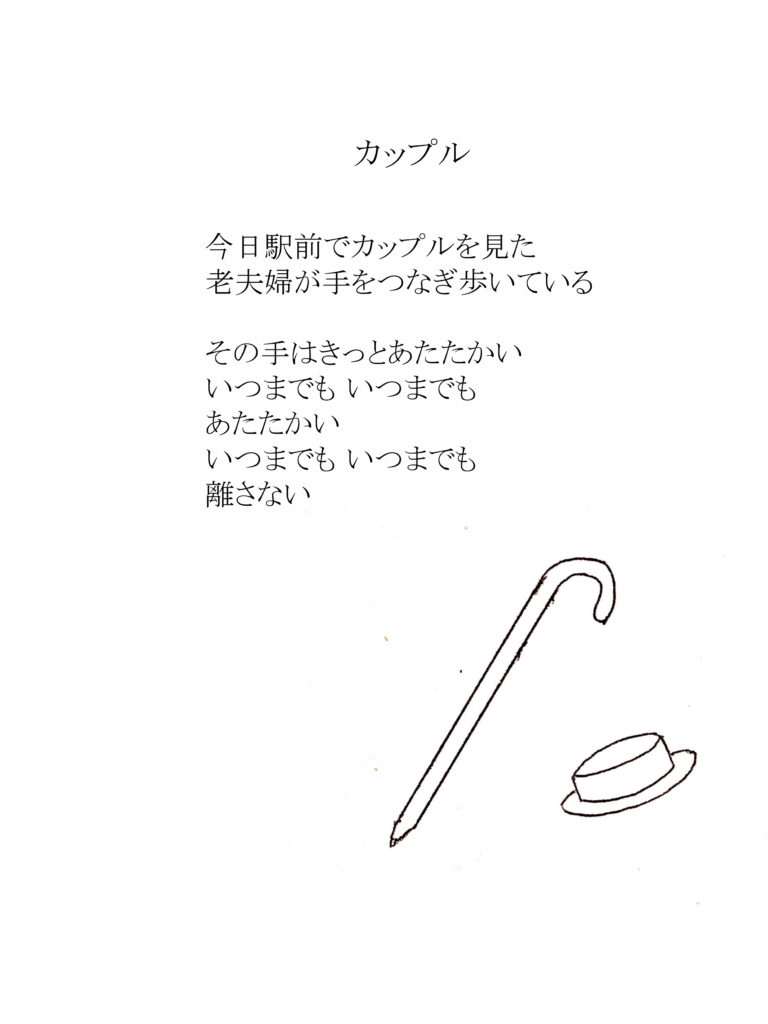 カップル
今日駅前でカップルを見た
老夫婦が手をつなぎ歩いている
その手はきっとあたたかい
いつまでも いつまでも
あたたかい
いつまでも いつまでも
離さない